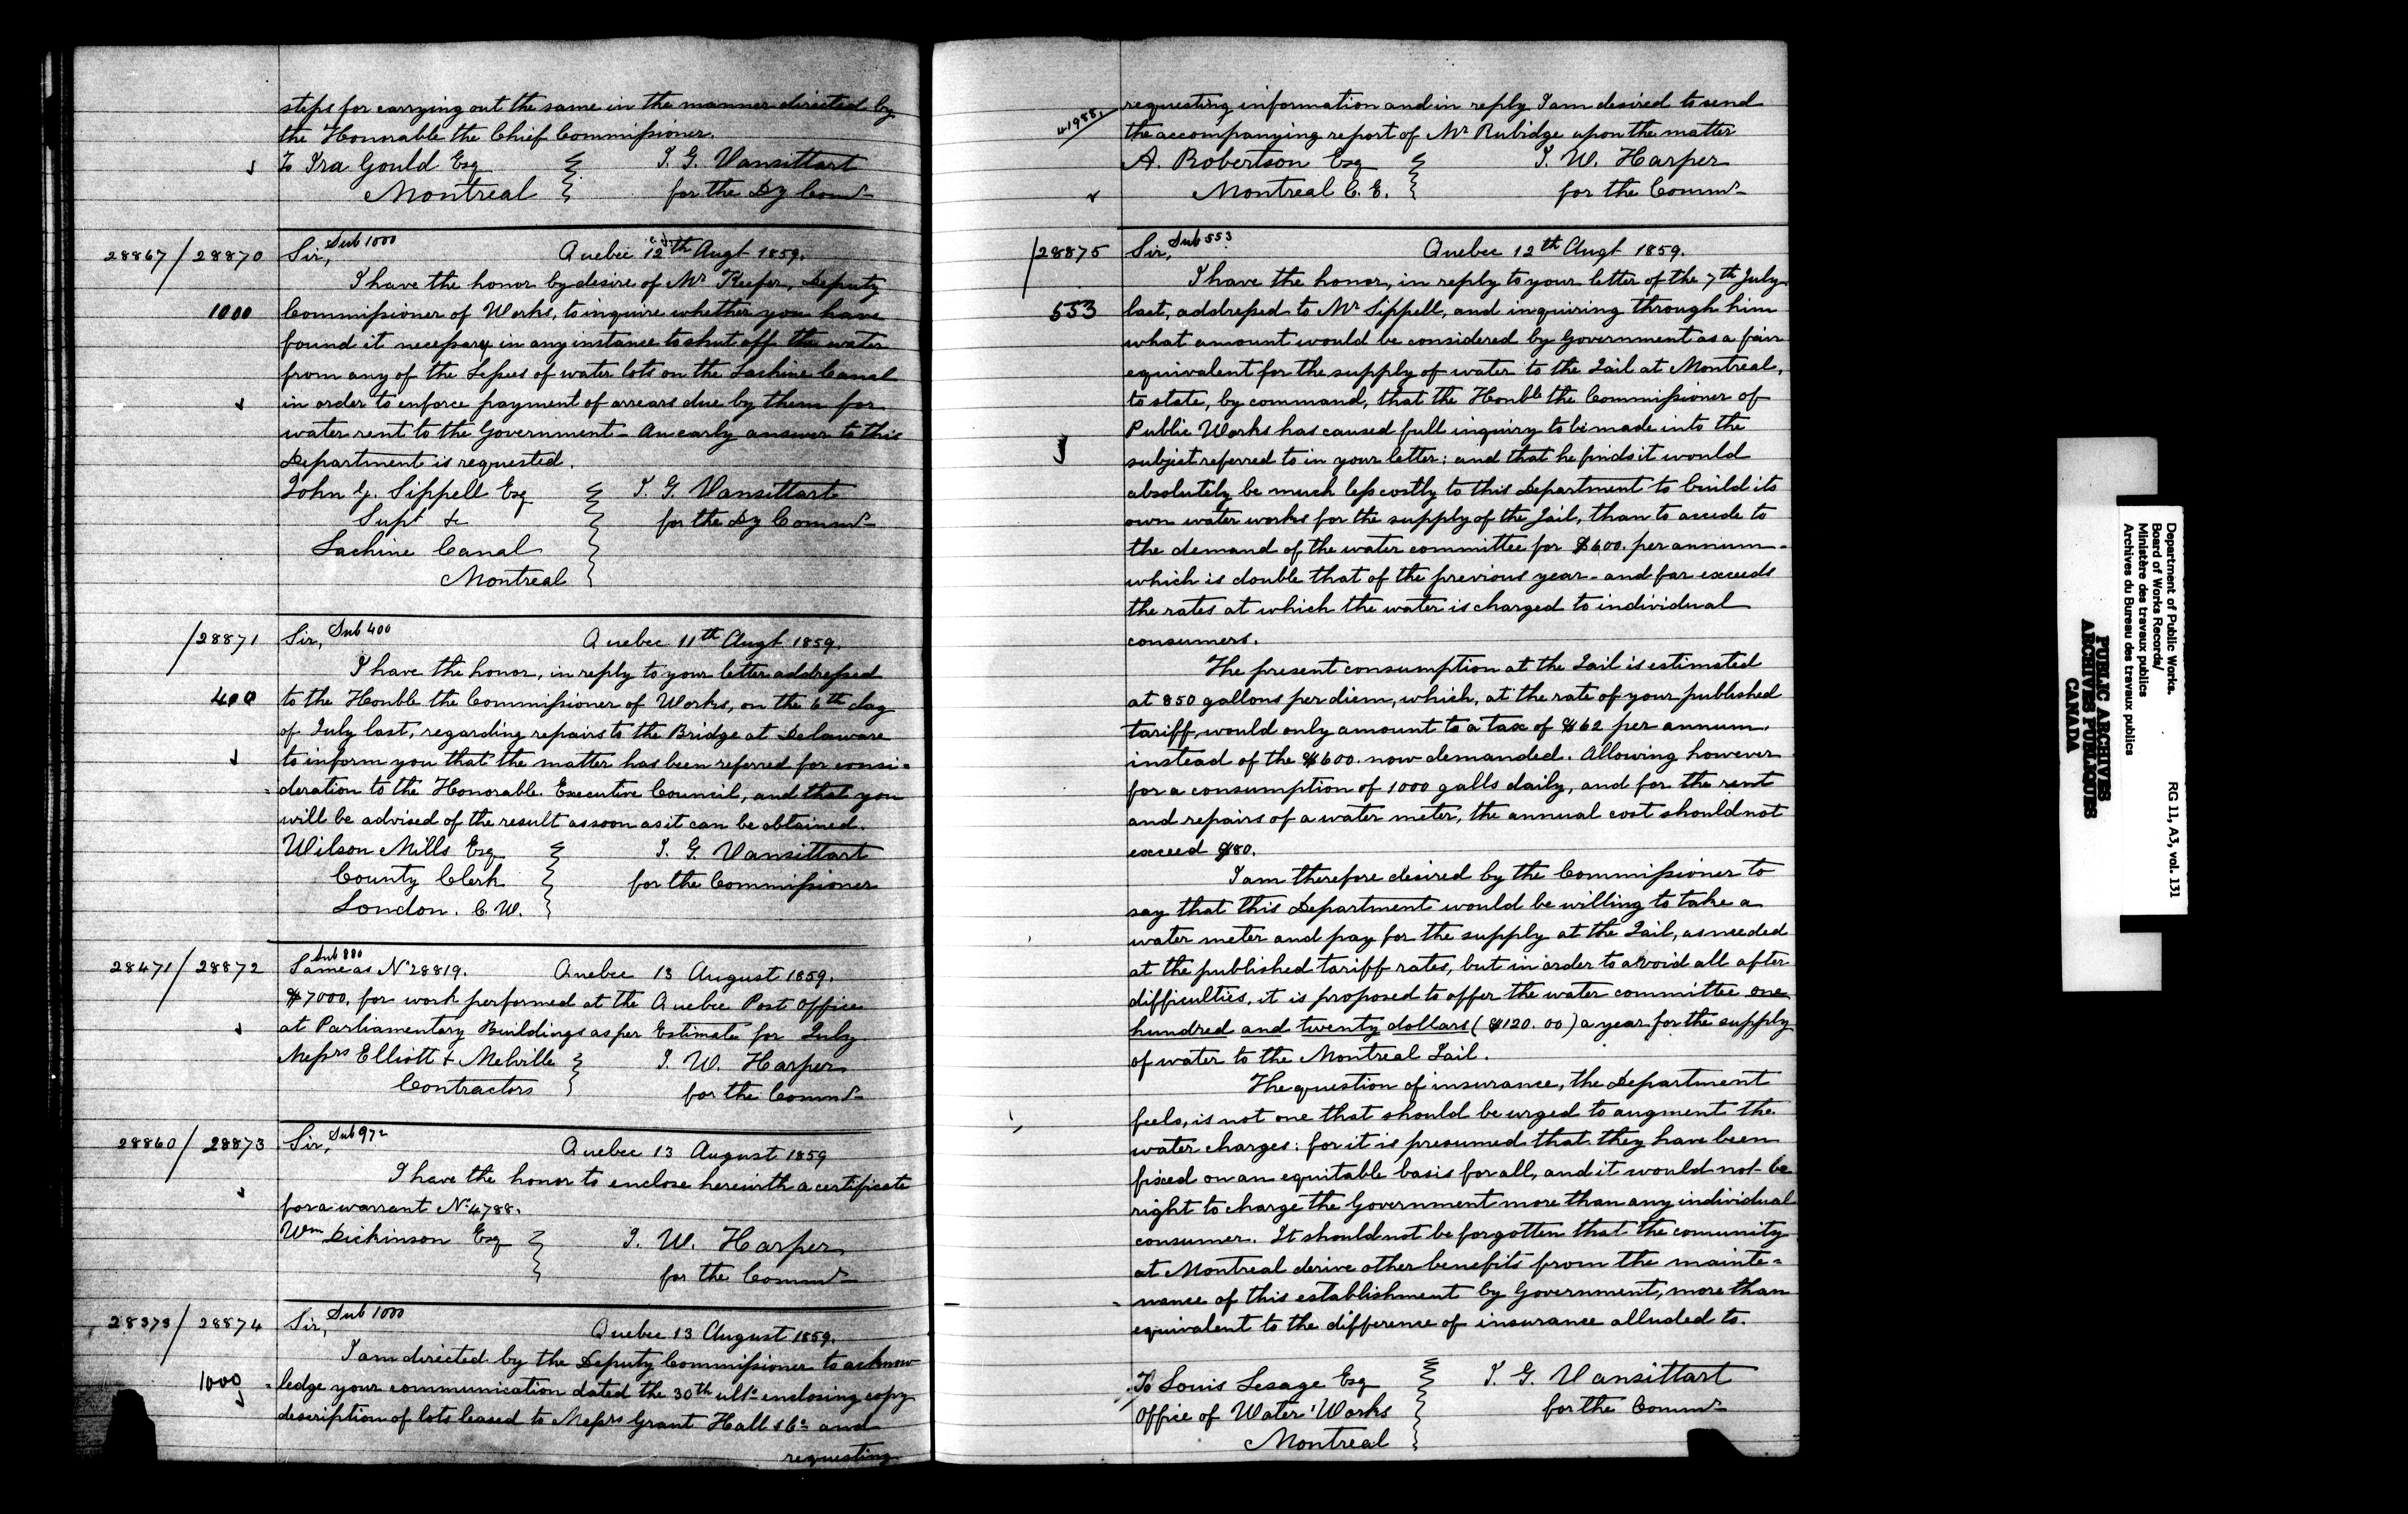 steps for carrying out the same in the manner directed by
the Honorable the Chief Commissioner.
To Ira Gould Esq T. G. Vansittart
Montreal for the Dy Comr
28867/28870 Sir, Sub 1000 Quebec 12th Augt 1859.
I have the honor by desire of Mr Keefer, Deputy
1000 Commissioner of Works, to inquire whether you have
found it necessary in any instance to shut off the water
from any of the Lessees of water lots on the Lachine Canal
in order to enforce payment of arrears due by them for
water rent to the Government - An early answer to this
Department is requested.
John G. Sippell Esq T. G. Vansittart
Supt &c for the Dy Commr
Lachine Canal
Montreal
/28871 Sir, Sub 400 Quebec 11th Augt 1859.
I have the honor, in reply to your letter addressed
400 to the Honble the Commissioner of Works, on the 6th day
of July last, regarding repairs to the Bridge at Delaware
to inform you that the matter has been referred for consi=
=deration to the Honorable Executive Council, and that you
will be advised of the result as soon as it can be obtained.
Wilson Mills Esq T. G. Vansittart
County Clerk for the Commissioner
London. C. W.
Sub 880
28471/28872 Same as No 28819. Quebec 13 August 1859.
$7000, for work performed at the Quebec Post Office
at Parliamentary Buildings as per Estimate for July
Messrs Elliott & Melville T. W. Harper
Contractors for the Commr
28860/28873 Sir, Sub 972 Quebec 13 August 1859
I have the honor to enclose herewith a certificate
for a warrant No 4788.
Wm Dickinson Esq T. W. Harper
for the Commr
28373/28874 Sir, Sub 1000 Quebec 13 August 1859.
I am directed by the Deputy Commissioner to acknow
1000 =ledge your communication dated the 30th ulto enclosing copy
description of lots leased to Messrs Grant Hall & Co and
requesting
41988. requesting information and in reply I am desired to send
the accompanying report of Mr Rubidge upon the matter
A. Robertson Esq T. W. Harper
Montreal C. E. for the Commr
/28875 Sir, Sub 553 Quebec 12th Augt 1859.
I have the honor, in reply to your letter of the 7th July
553 last, addressed to Mr Sippell, and inquiring through him
what amount would be considered by Government as a fair
equivalent for the supply of water to the Jail at Montreal,
to state, by command, that the Honble the Commissioner of
Public Works has caused full inquiry to be made into the
subject referred to in your letter; and that he finds it would
absolutely be much less costly to this Department to build its
own water works for the supply of the Jail, than to accede to
the demand of the water committee for $600. per annum -
which is double that of the previous year - and far exceeds
the rates at which the water is charged to individual
consumers.
The present consumption at the Jail is estimated
at 850 gallons per diem, which, at the rate of your published
tariff would only amount to a tax of $62 per annum,
instead of the $600. now demanded. Allowing however
for a consumption of 1000 galls daily, and for the rent
and repairs of a water meter, the annual cost should not
exceed $80.
I am therefore desired by the Commissioner to
say that this Department would be willing to take a
water meter and pay for the supply at the Jail, as needed
at the published tariff rates, but in order to avoid all after
difficulties, it is proposed to offer the water committee one
hundred and twenty dollars ($120.00) a year for the supply
of water to the Montreal Jail.
The question of insurance, the Department
feels, is not one that should be urged to augment the
water charges: for it is presumed that they have been
fixed on an equitable basis for all, and it would not be
right to charge the Government more than any individual
consumer. It should not be forgotten that the comunity
at Montreal derive other benefits from the mainte=
=nance of this establishment by Government, more than
equivalent to the difference of insurance alluded to.
To Louis Lesage Esq T. G. Vansittart
Office of Water Works for the Commr
Montreal
Department of Public Works. RG 11, A3, vol. 131
Board of Works Records/
Ministère des travaux publics
Archives du Bureau des travaux publics
PUBLIC ARCHIVES
ARCHIVES PUBLIQUES
CANADA